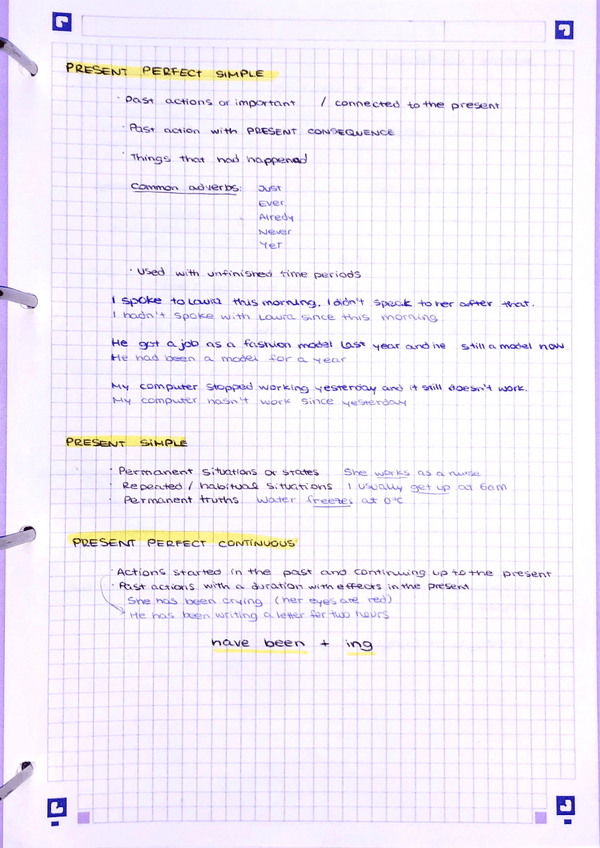 PRESENT PERFECT SIMPLE
· Past actions or important / connected to the present
· Past action with PRESENT CONSEQUENCE
· Things that had happened
Common adverbs: Just
Ever
Alredy
Never
Yet
· Used with unfinished time periods
I spoke to Laura this morning. I didn't speak to her after that.
I hadn't spoke with Laura since this morning
He got a job as a fashion model last year and he still a model now
He had been a model for a year
My computer stopped working yesterday and it still doesn't work.
My computer hasn't work since yesterday
PRESENT SIMPLE
· Permanent situations or states She works as a nurse
· Repeated / habitual situations I usually get up at 6am
· Permanent truths Water freezes at 0°C
PRESENT PERFECT CONTINUOUS
· Actions started in the past and continuing up to the present
· Past actions with a duration with effects in the present
She has been crying (her eyes are red)
He has been writing a letter for two hours
have been + ing